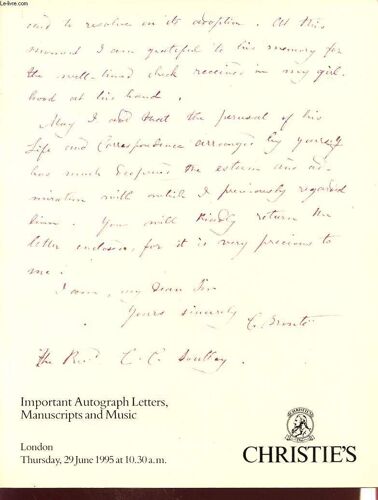 Le-livre.com
and to resolve on its adoption. At this
moment I am grateful to his memory for
the well-timed check received in my girl-
hood at his hand.
May I add that the perusal of his
Life and Correspondence arranged by yourself
has much deepened the esteem and ad-
miration with which I previously regarded
him. You will kindly return the
letter enclosed, for it is very precious to
me.
I am, my dear Sir
Yours sincerely
C. Brontë
The Revd C. C. Southey.
Important Autograph Letters,
Manuscripts and Music
London
Thursday, 29 June 1995 at 10.30 a.m.
CHRISTIE'S